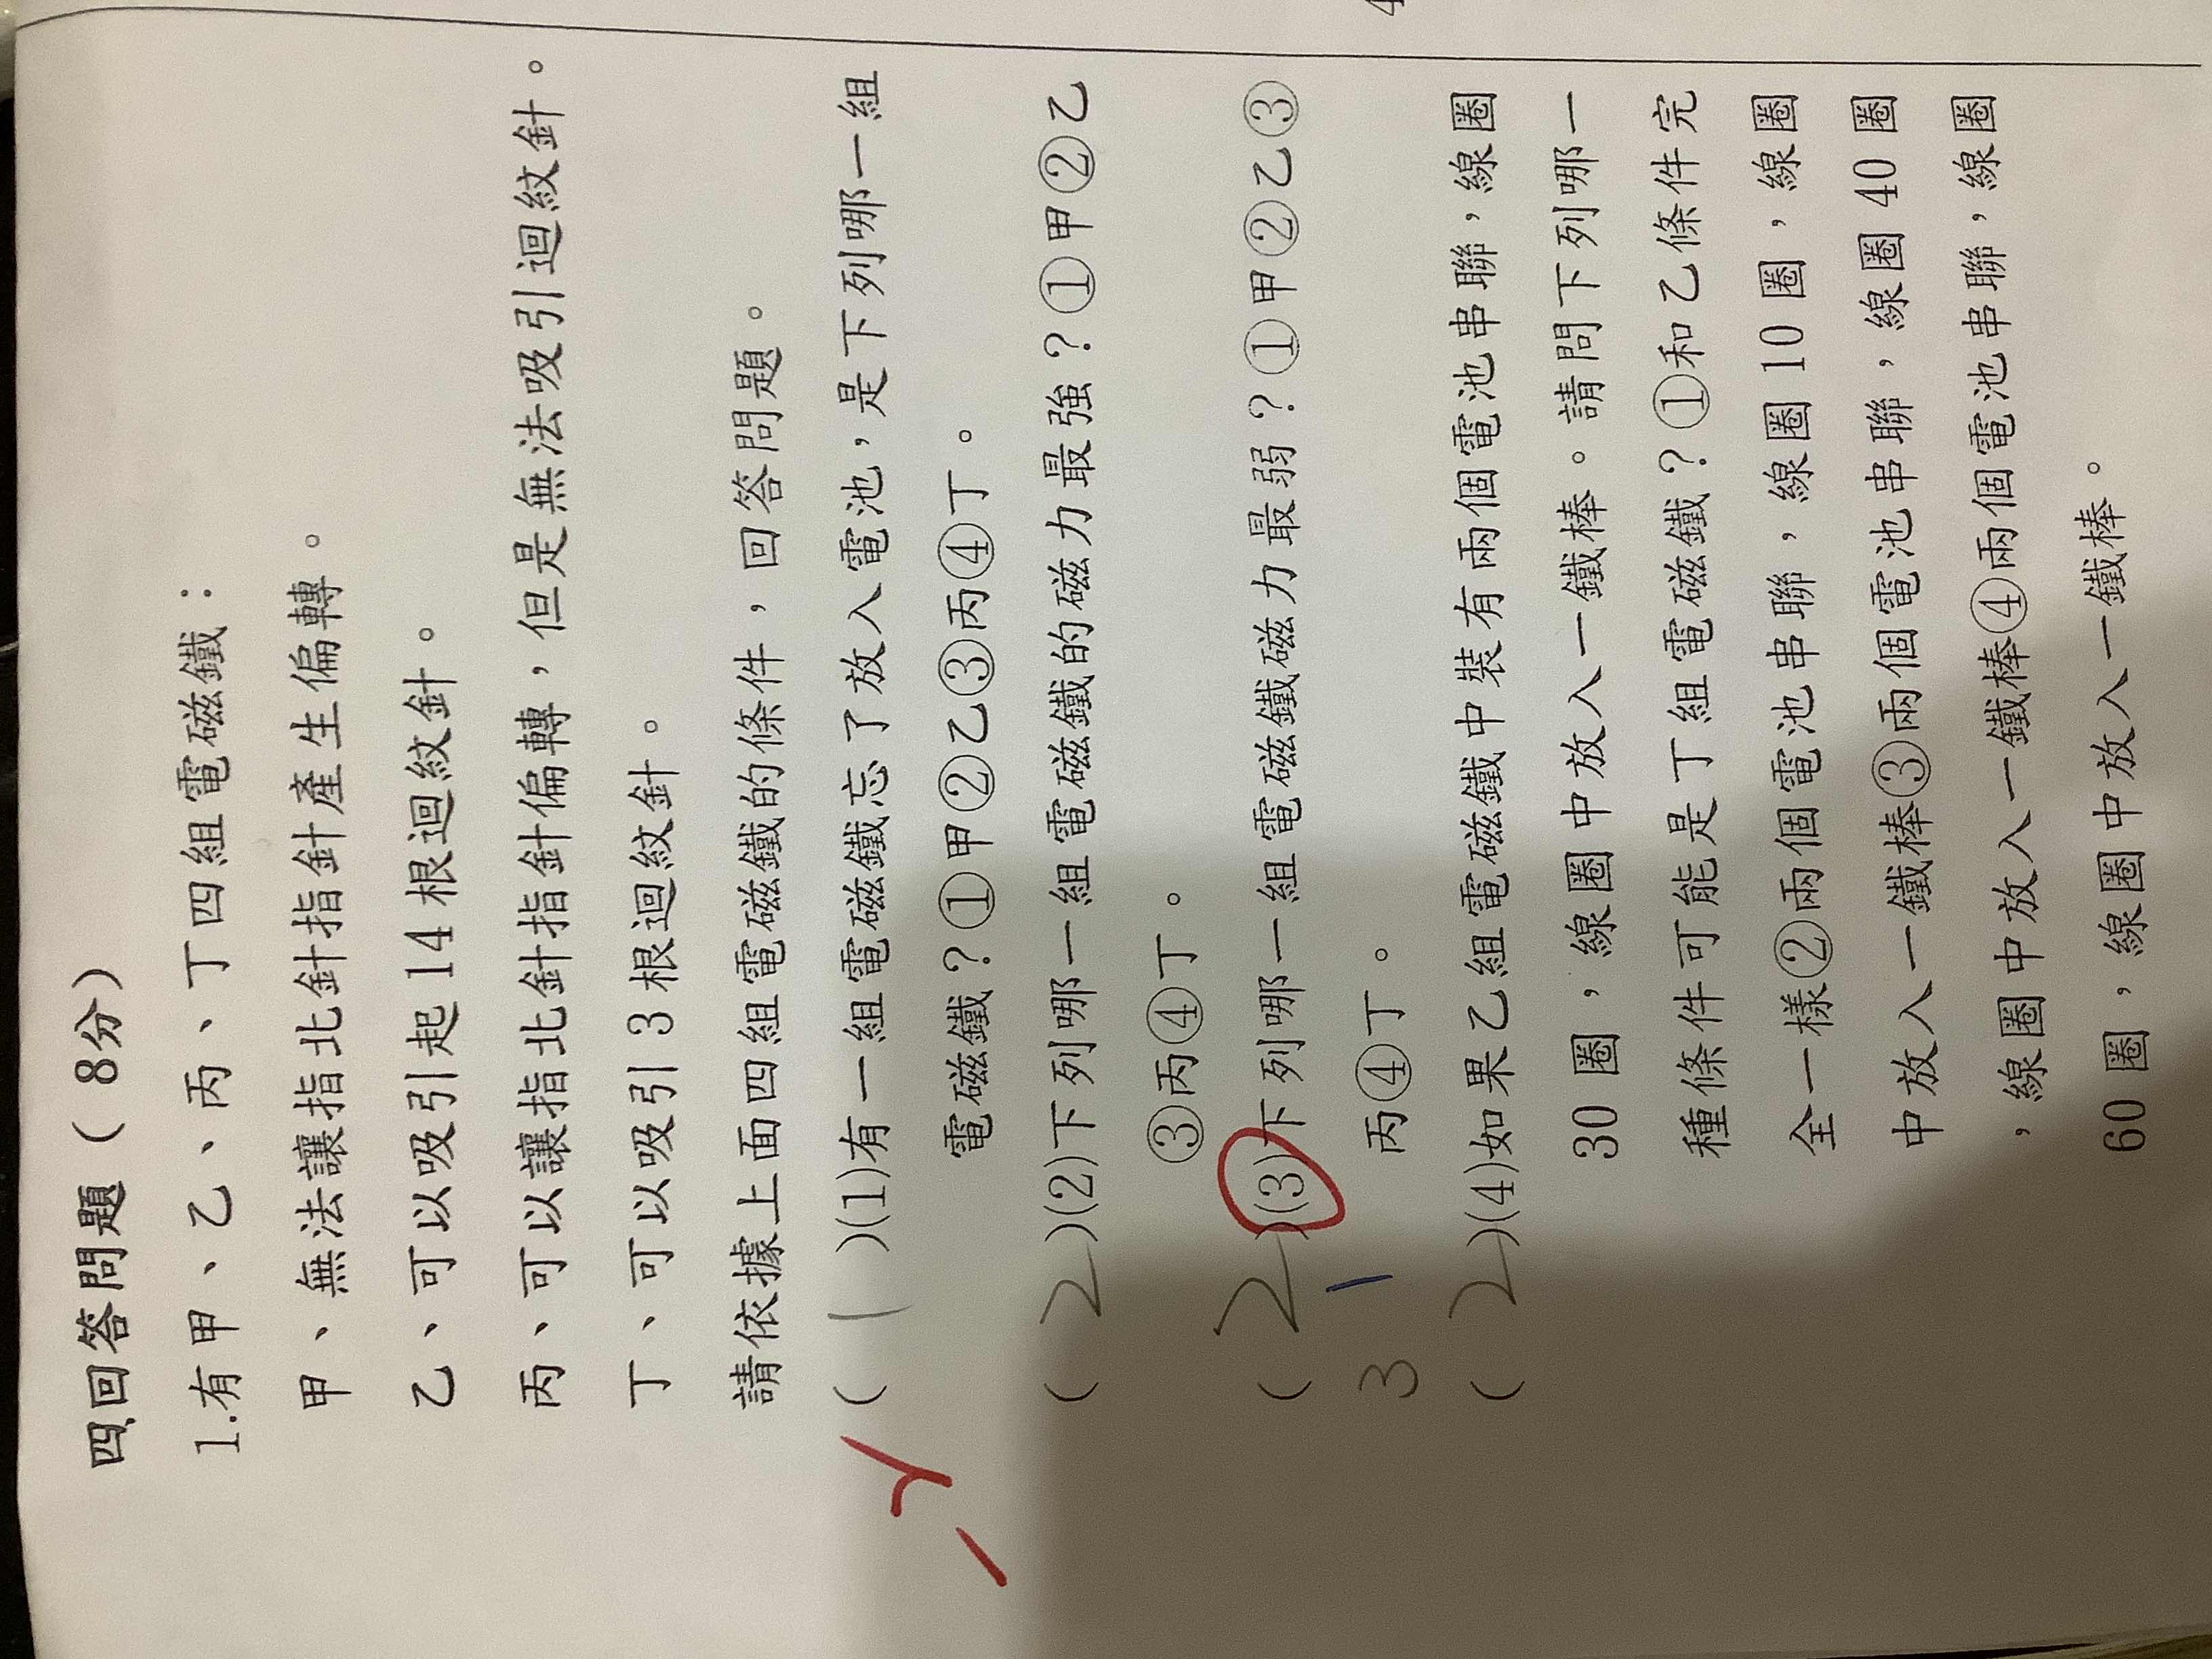 四、回答問題（8分）
1.有甲、乙、丙、丁四組電磁鐵：
甲、無法讓指北針指針產生偏轉。
乙、可以吸引起14根迴紋針。
丙、可以讓指北針指針偏轉，但是無法吸引迴紋針。
丁、可以吸引3根迴紋針。
請依據上面四組電磁鐵的條件，回答問題。
( 1 )(1)有一組電磁鐵忘了放入電池，是下列哪一組
電磁鐵？①甲②乙③丙④丁。
( 2 )(2)下列哪一組電磁鐵的磁力最強？①甲②乙
③丙④丁。
( 2 )(3)下列哪一組電磁鐵磁力最弱？①甲②乙③
3 1 丙④丁。
( 2 )(4)如果乙組電磁鐵中裝有兩個電池串聯，線圈
30圈，線圈中放入一鐵棒。請問下列哪一
種條件可能是丁組電磁鐵？①和乙條件完
全一樣②兩個電池串聯，線圈10圈，線圈
中放入一鐵棒③兩個電池串聯，線圈40圈
，線圈中放入一鐵棒④兩個電池串聯，線圈
60圈，線圈中放入一鐵棒。